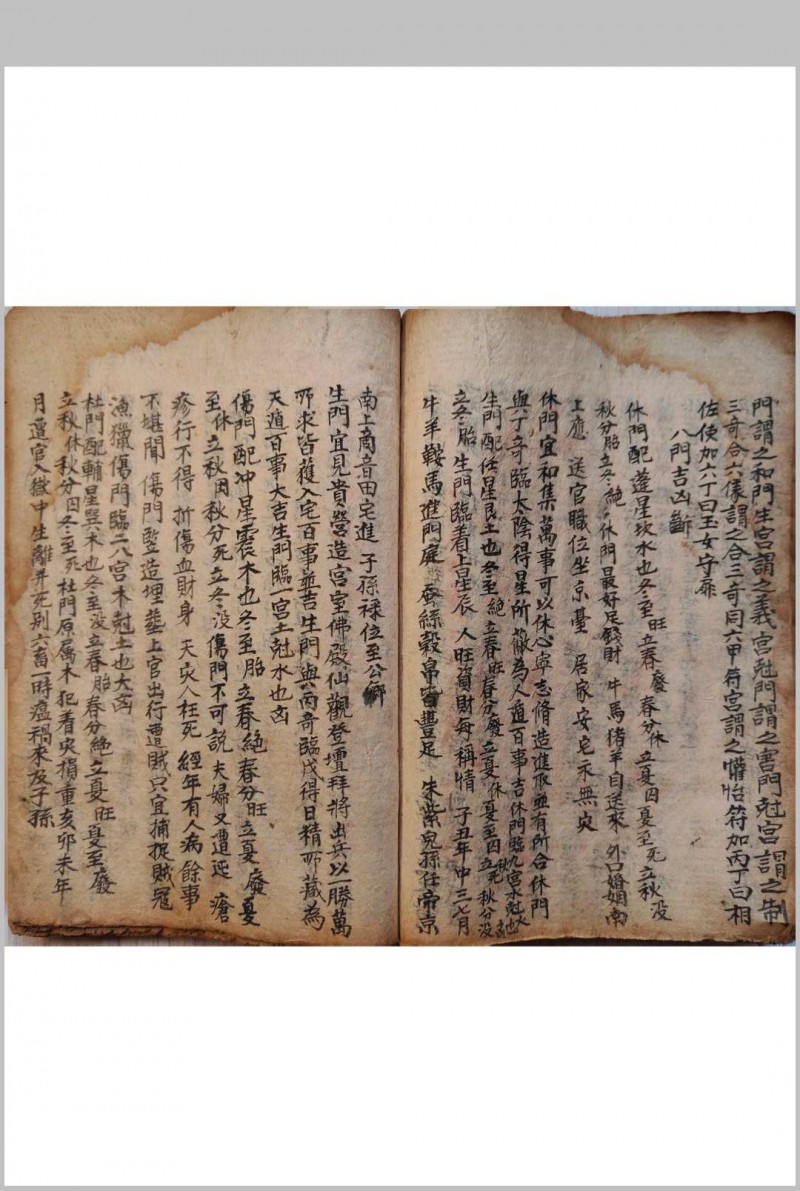 門謂之和門生宮謂之義宮尅門謂之害門尅宮謂之制
三奇合六儀謂之合三奇同六甲符宮謂之懽怡符加丙丁曰相
佐使加六丁曰玉女守扉
八門吉凶斷
休門配蓬星坎水也冬至旺立春廢春分休立夏囚夏至死立秋没
秋分胎立冬絶休門最好足錢財牛馬猪羊自送來外口婚姻南
上應送官職位坐京臺居家安宅永無灾
休門宜和集萬事可以休心寧志脩造進取並有所合休門
與丁奇臨太陰得星所蔽為人遁百事吉休門臨九宮水尅火也
生門配任星艮土也冬至絶立春旺春分廢立夏休夏至囚立秋死秋分没
立冬胎生門臨著上星辰人旺資財每稱情子丑年中三七月
牛羊鞍馬進門庭蚕絲穀帛皆豐足朱紫兒孫任帝京
南上商音田宅進子孫禄位至公卿
生門宜見貴營造宮室佛殿仙觀登壇拜將出兵以一勝萬
所求皆獲入宅百事並吉生門與丙奇臨戊得日精所蔽為
天遁百事大吉生門臨一宮土尅水也凶
傷門配冲星震木也冬至胎立春絶春分旺立夏廢夏
至休立秋囚秋分死立冬没傷門不可説夫婦又遭迍瘡
疼行不得折傷血財身天灾人枉死經年有人病餘事
不堪聞傷門竪造埋塟上官出行遭賊只宜捕捉賊冦
漁獵傷門臨二八宮木尅土也大凶
杜門配輔星巽木也冬至没立春胎春分絶立夏旺夏至廢
立秋休秋分囚冬至死杜門原属木犯着灾損重亥卯未年
月遭官入獄中生離并死别六畜一時瘟禍來及子孫